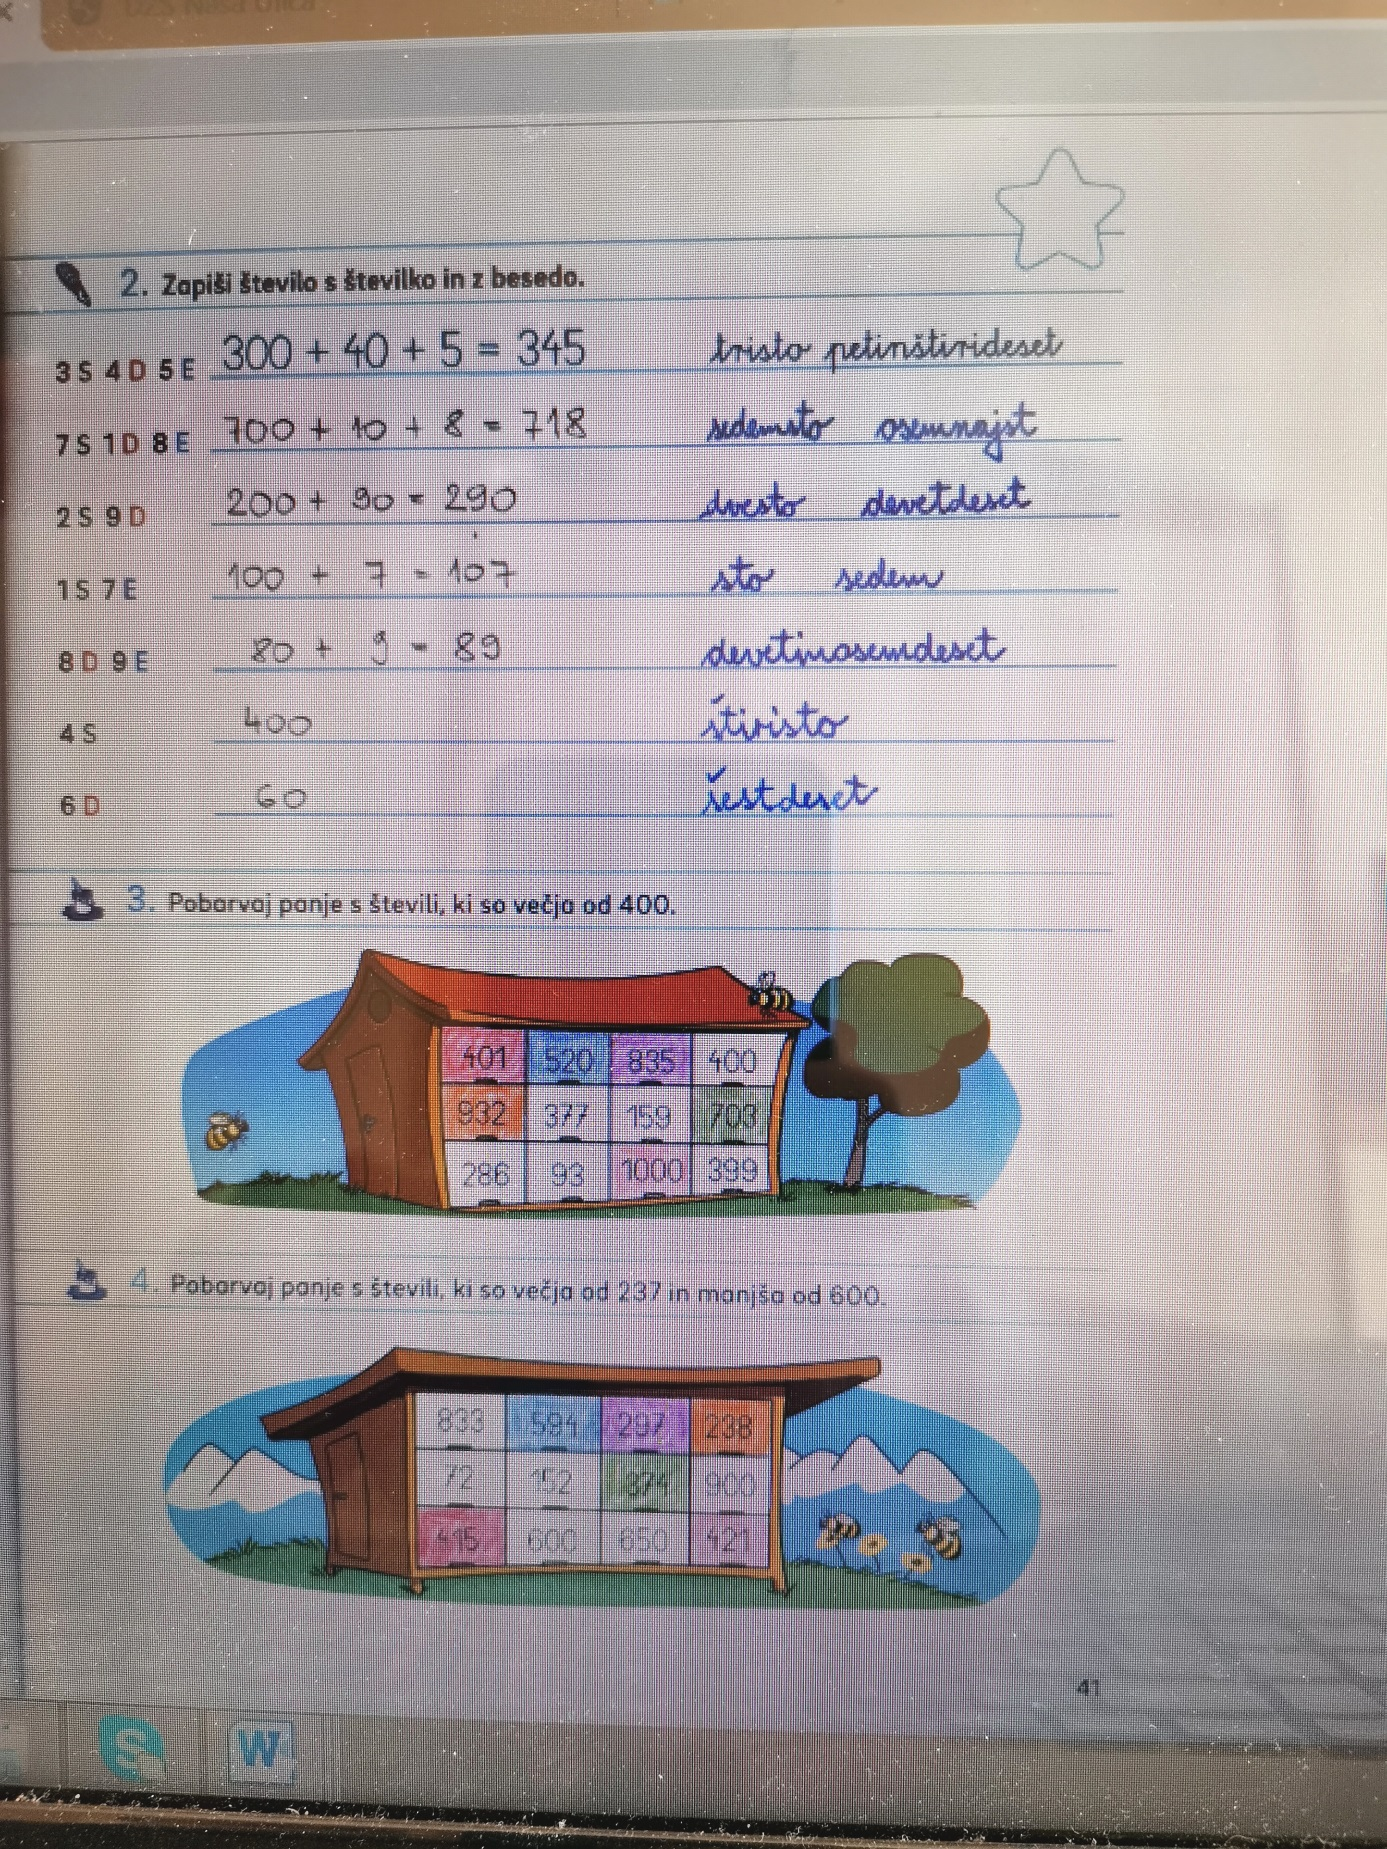 2. Zapiši število s številko in z besedo.
3 S 4 D 5 E 300 + 40 + 5 = 345 tristo petinštirideset
7 S 1 D 8 E 700 + 10 + 8 = 718 sedemsto osemnajst
2 S 9 D 200 + 90 = 290 dvesto devetdeset
1 S 7 E 100 + 7 = 107 sto sedem
8 D 9 E 80 + 9 = 89 devetinosemdeset
4 S 400 štiristo
6 D 60 šestdeset
3. Pobarvaj panje s števili, ki so večja od 400.
401 520 835 400
932 377 159 703
286 93 1000 399
4. Pobarvaj panje s števili, ki so večja od 237 in manjša od 600.
833 594 297 238
72 152 374 900
415 600 650 421
41
S W